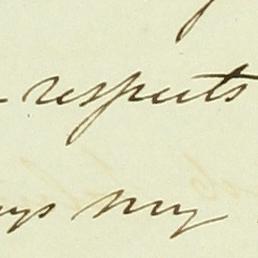 respects
my